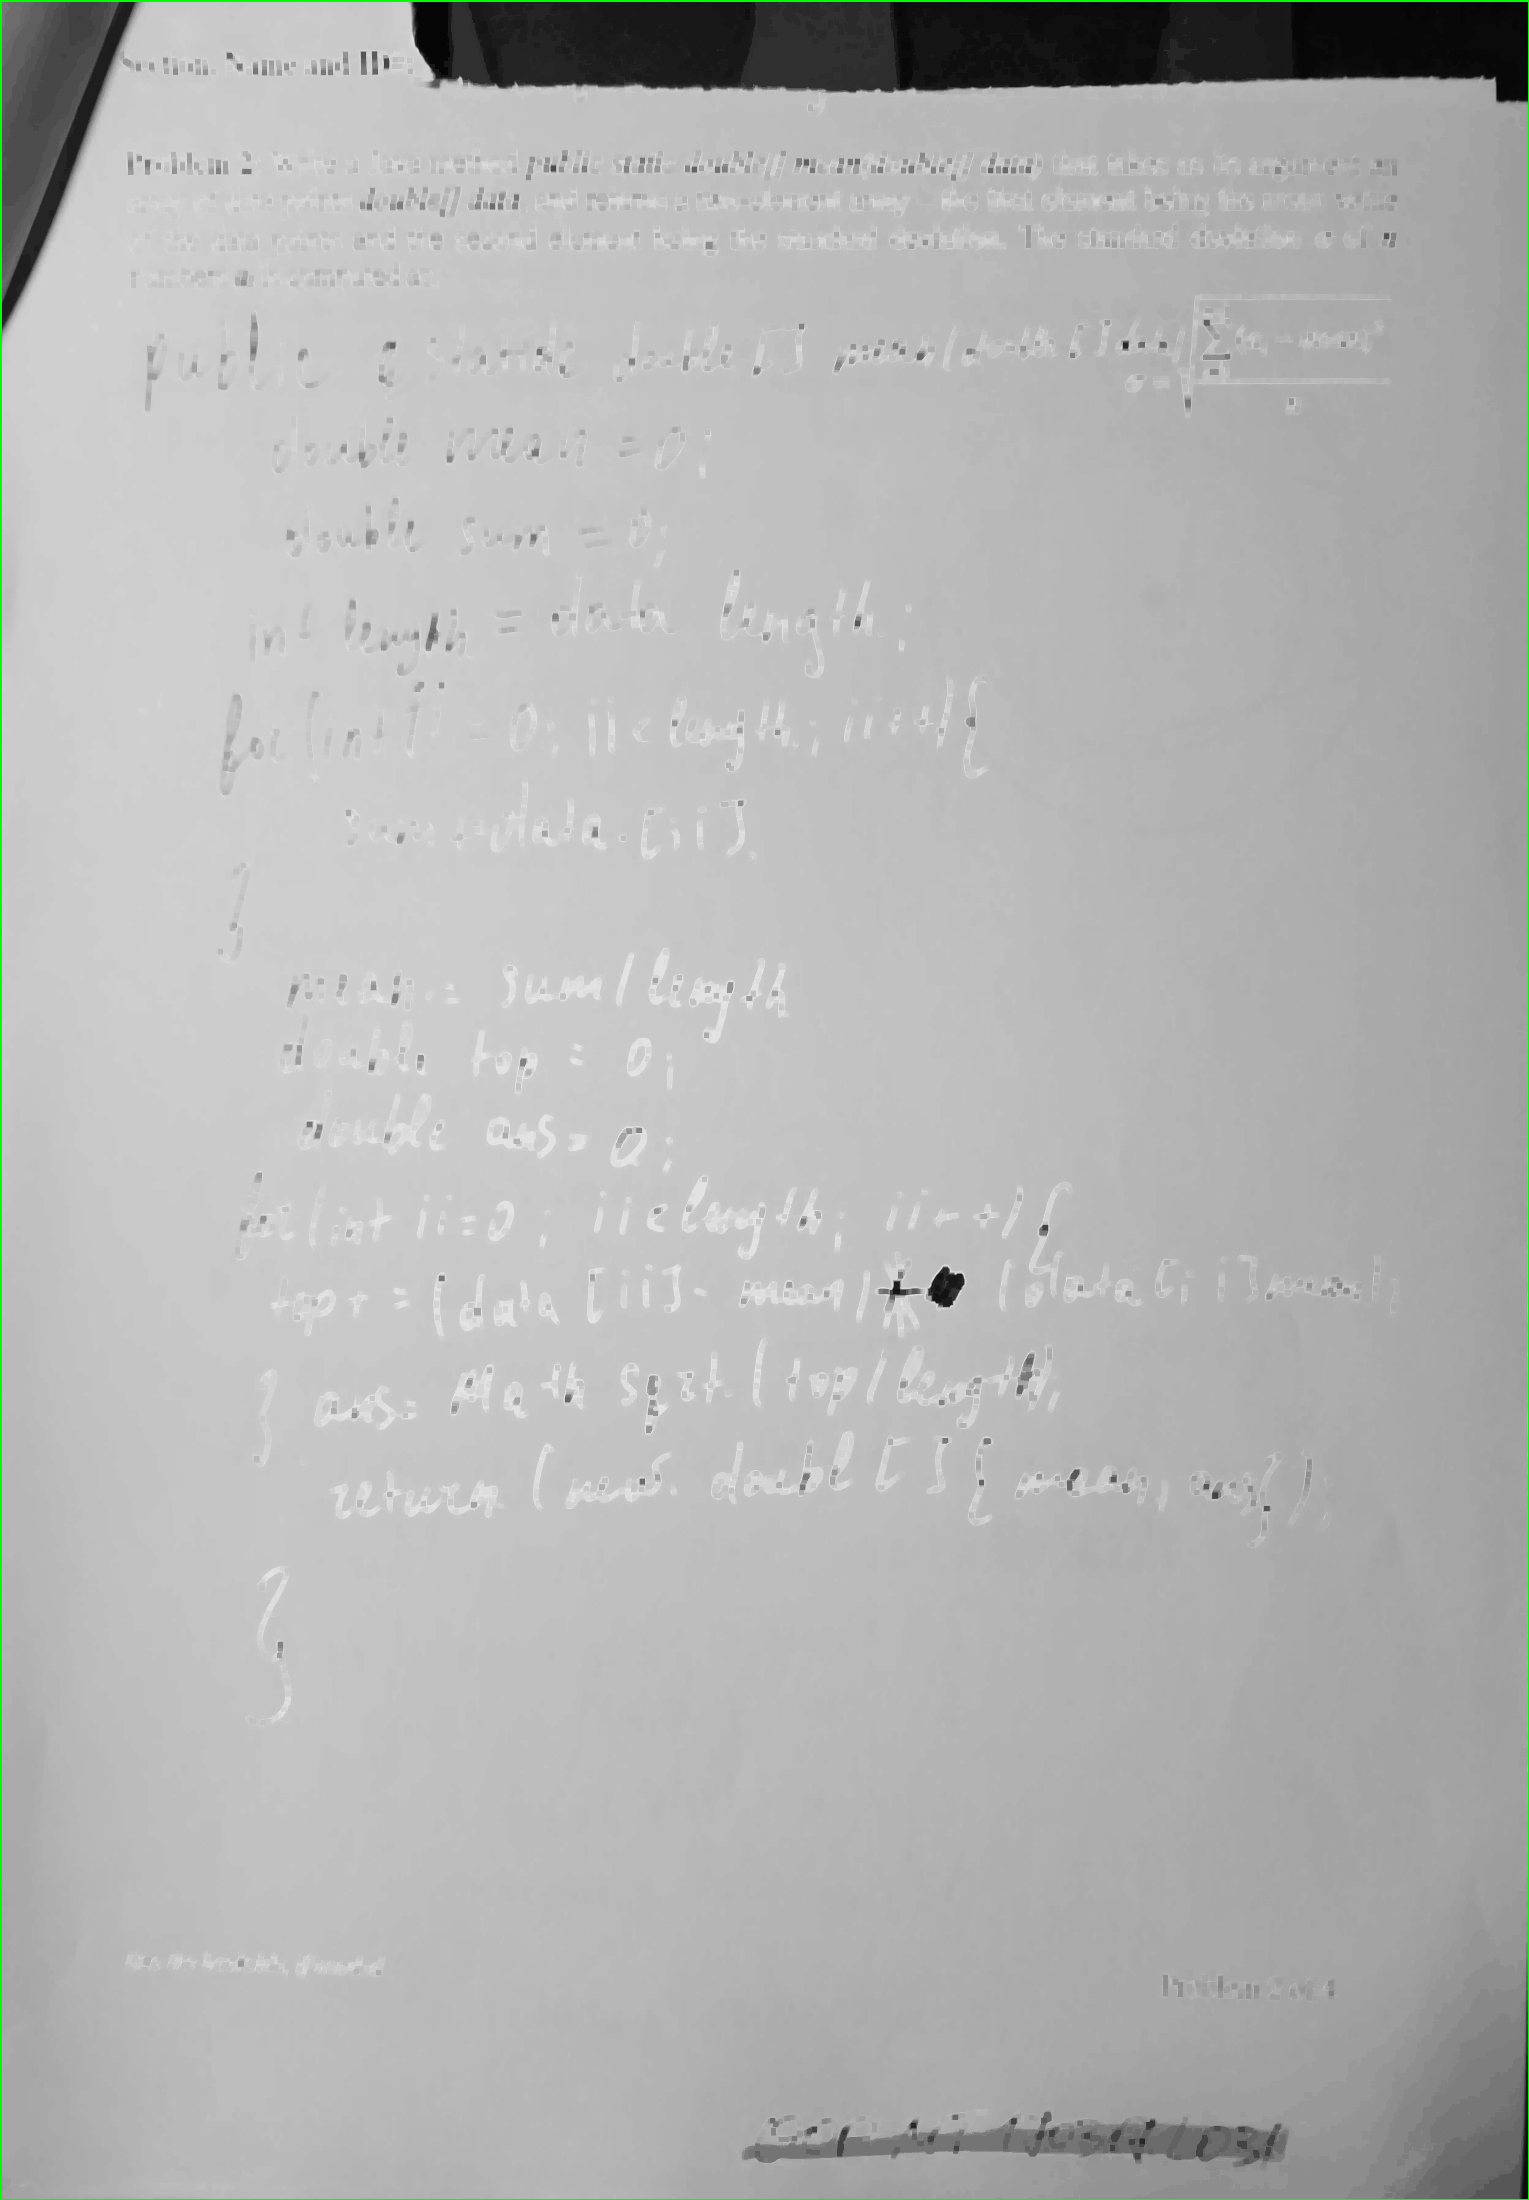 Section, Name and ID#:
Problem 2: Write a Java method public static double[] mean(double[] data) that takes as its argument an
array of data points double[] data, and returns a two-element array - the first element being the mean value
of the data points and the second element being the standard deviation. The standard deviation σ of n
numbers is computed as:
public static double[] mean(double[] data)
σ = √ Σ (x - mean)²
n
double mean = 0;
double sum = 0;
int length = data length;
for (int ii = 0; ii < length; ii++) {
sum += data [ii];
}
mean = sum / length
double top = 0;
double ans = 0;
for (int ii = 0; ii < length; ii++) {
top += (data [ii] - mean) * (data [ii] mean);
} ans = Math sqrt (top / length);
return (new doubl [] { mean, ans});
}
Problem 2 of 4